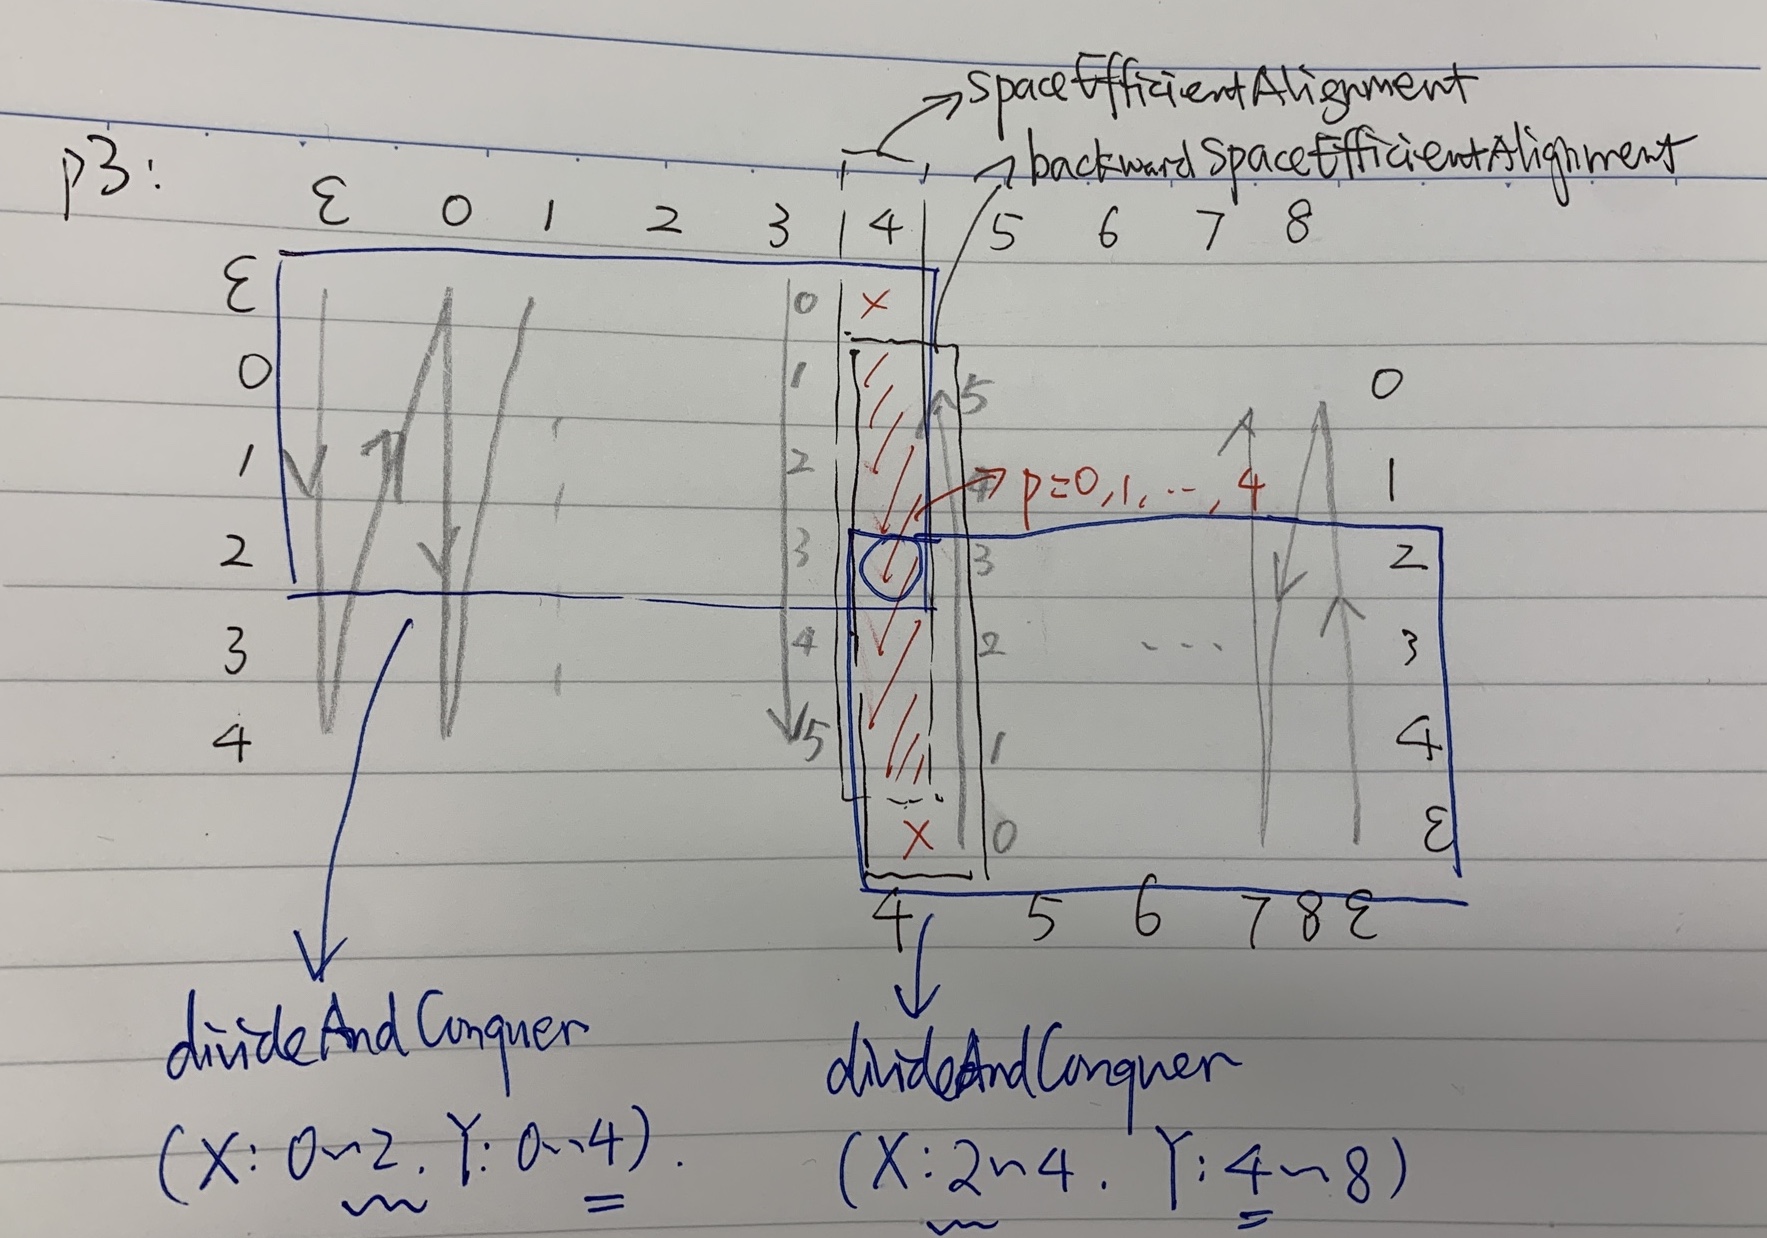 spaceEfficientAlignment
backwardSpaceEfficientAlignment
p3:
ε 0 1 2 3 4 5 6 7 8
ε 0 ×
0 1 5 0
1 2 4 p=0,1,...,4 1
2 3 3 2
3 4 2 ... 3
4 5 1 4
× 0 ε
4 5 6 7 8 ε
divideAndConquer
(X: 0~2. Y: 0~4).
divideAndConquer
(X: 2~4. Y: 4~8)